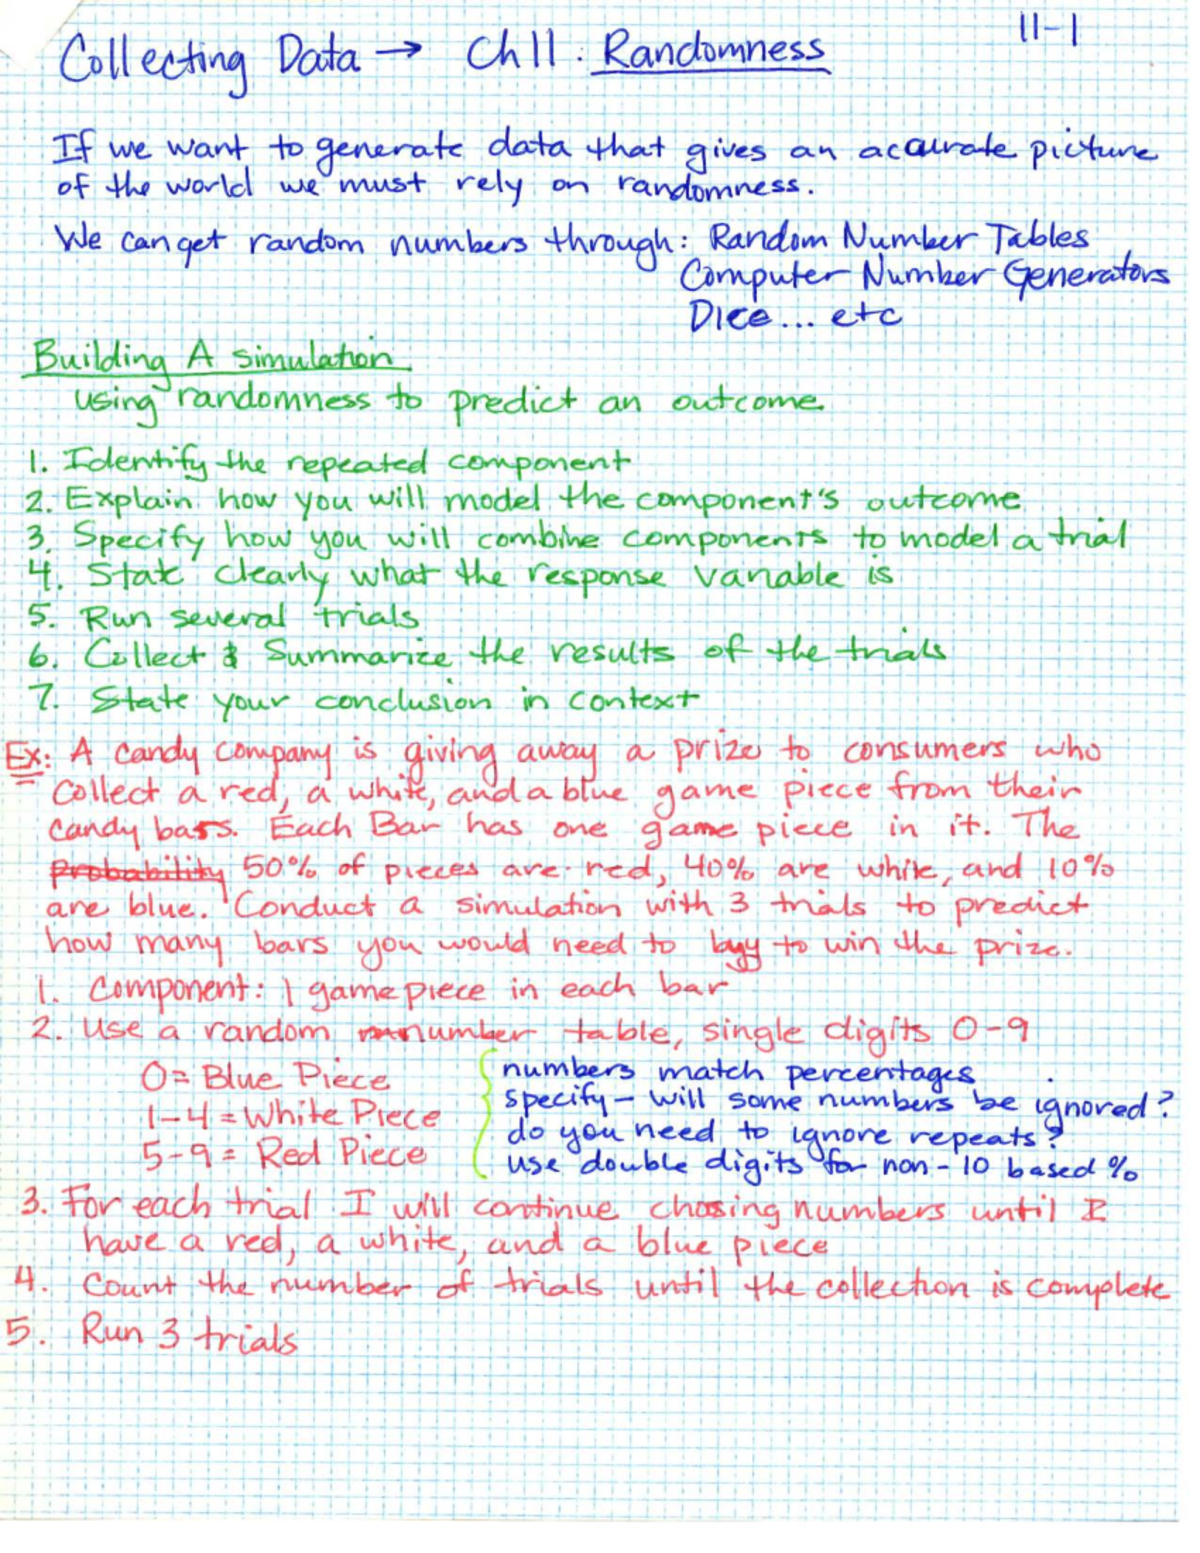 11-1
Collecting Data → Ch 11: Randomness
If we want to generate data that gives an accurate picture
of the world we must rely on randomness.
We can get random numbers through: Random Number Tables
Computer Number Generators
Dice... etc
Building A simulation
using randomness to predict an outcome
1. Identify the repeated component
2. Explain how you will model the component's outcome
3. Specify how you will combine components to model a trial
4. State clearly what the response variable is
5. Run several trials
6. Collect & Summarize the results of the trials
7. State your conclusion in context
Ex: A candy company is giving away a prize to consumers who
collect a red, a white, and a blue game piece from their
candy bars. Each Bar has one game piece in it. The
Probability 50% of pieces are red, 40% are white, and 10%
are blue. Conduct a simulation with 3 trials to predict
how many bars you would need to buy to win the prize.
1. Component: 1 game piece in each bar
2. Use a random number table, single digits 0-9
0= Blue Piece
1-4 = White Piece
5-9 = Red Piece
numbers match percentages
specify - will some numbers be ignored?
do you need to ignore repeats?
use double digits for non-10 based %
3. For each trial I will continue chosing numbers until I
have a red, a white, and a blue piece
4. Count the number of trials until the collection is complete
5. Run 3 trials